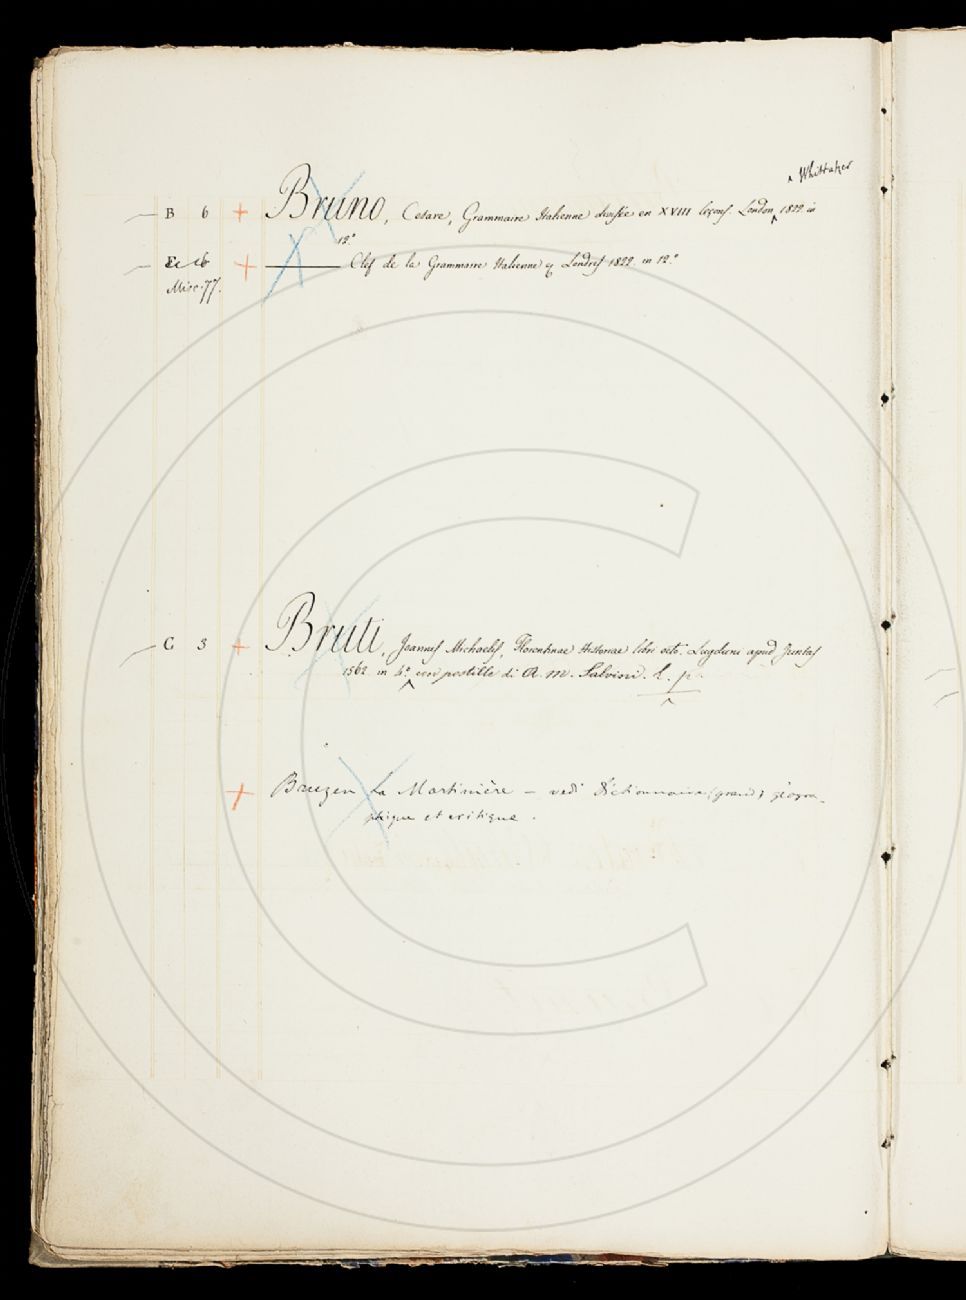 ‸ Whittaker
B 6 + Bruno, Cesare, Grammaire Italienne divisée en XVIII leçons. London ‸ 1822 in
12.°
6 + ——— Clef de la Grammaire Italienne Londres 1822 in 12.°
Misc. 77.
C 3 + Bruti, Joannes Michaelis, Florentinae Historiae libri octo. Lugduni apud Juntas
1562 in 4.° ‸ con postille di A. M. Salvini. L. p.
‸
+ Bruzen La Martinière – vedi Dictionnaire (grand) géogra-
phique et critique.